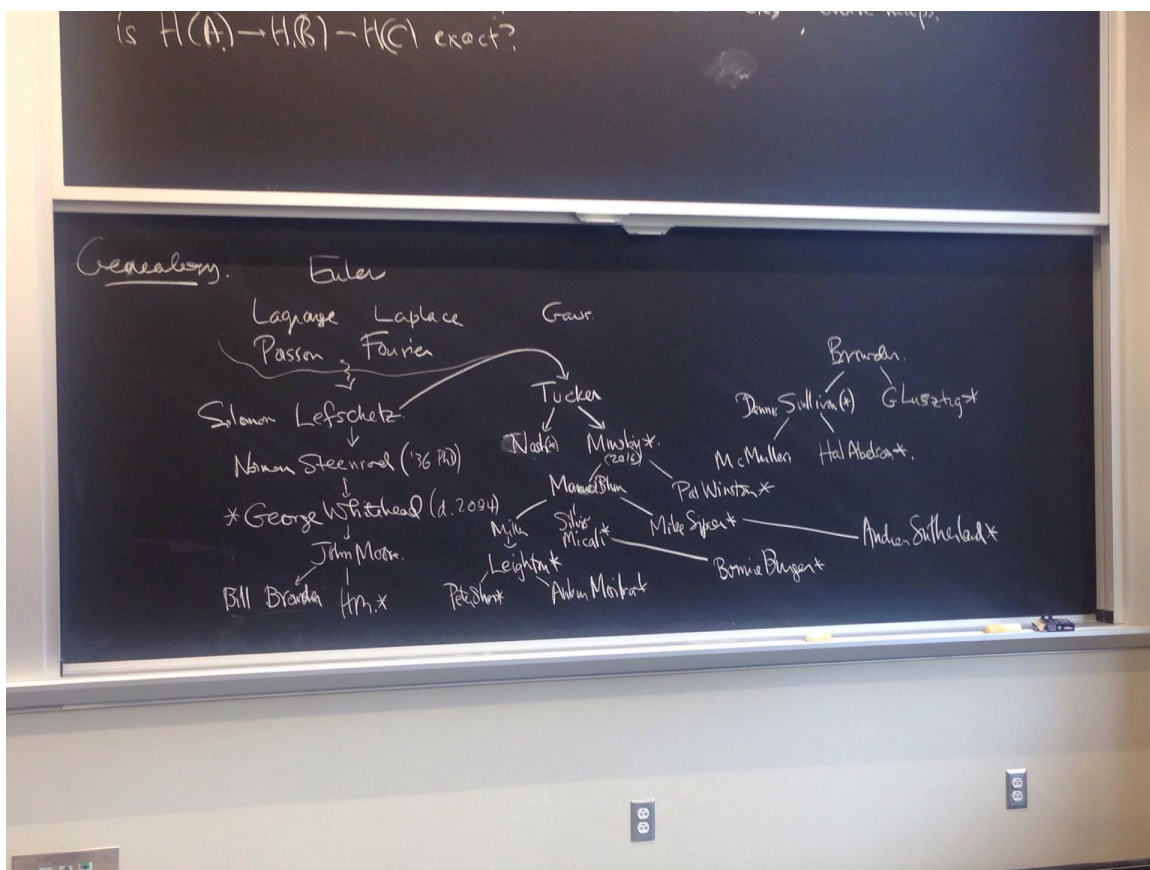 is H(A) → H(B) – H(C) exact?
Genealogy.
Euler
Lagrange Laplace Gauss.
Poisson Fourier
Solomon Lefschetz
Norman Steenrod ('36 PhD)
*George Whitehead (d. 2004)
John Moore.
Bill Browder HM.*
Tucker
Nash(*) Minsky*.
(2016)
Manuel Blum Pat Winston*
Miller Silvio Mike Sipser* Andrew Sutherland*
Micali*
Leighton* Bonnie Berger*
Peter Shor* Ankur Moitra*
Browder.
Dennis Sullivan(*) G Lusztig*
McMullen Hal Abelson*.